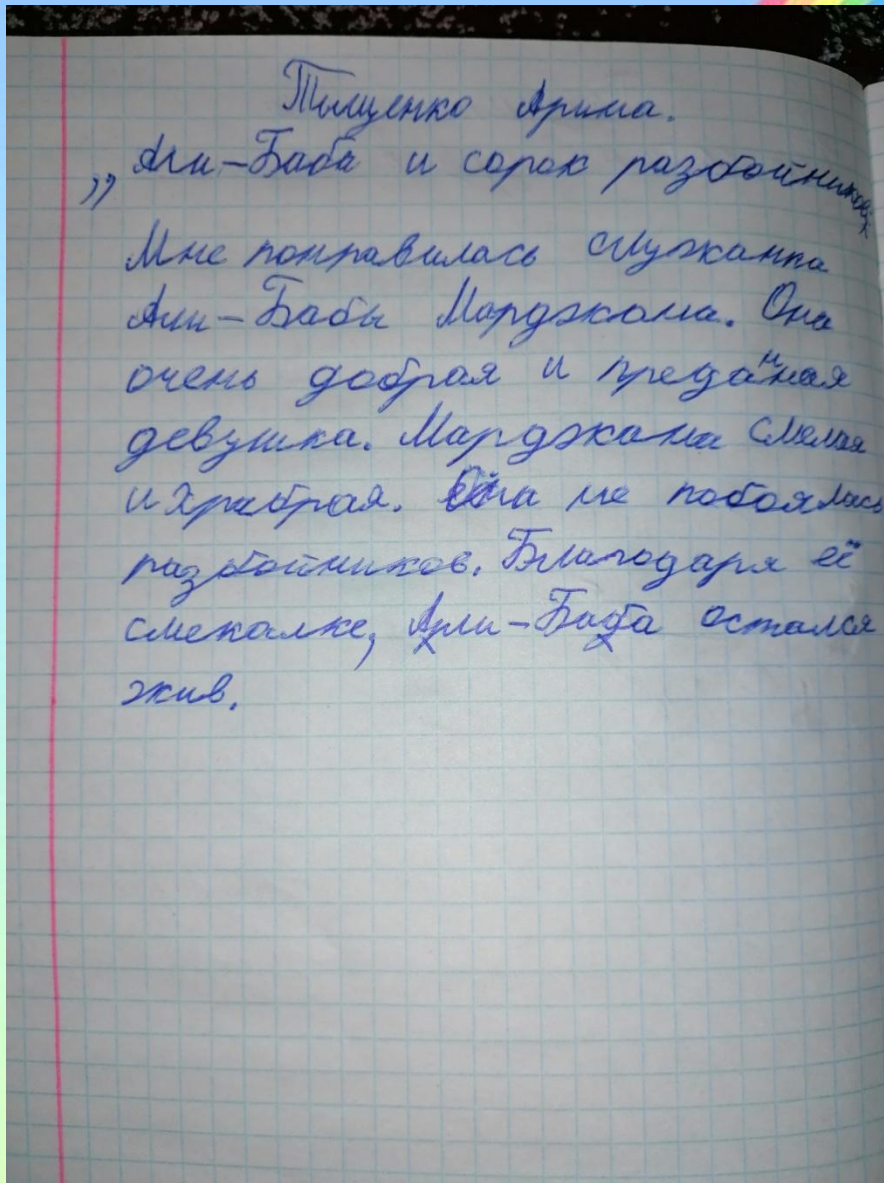 Тищенко Арина.
„Али-Баба и сорок разбойников"
Мне понравилась служанка
Али-Бабы Марджана. Она
очень добрая и преданная
девушка. Марджана смелая
и храбрая. Она не побоялась
разбойников. Благодаря её
смекалке, Али-Баба остался
жив.